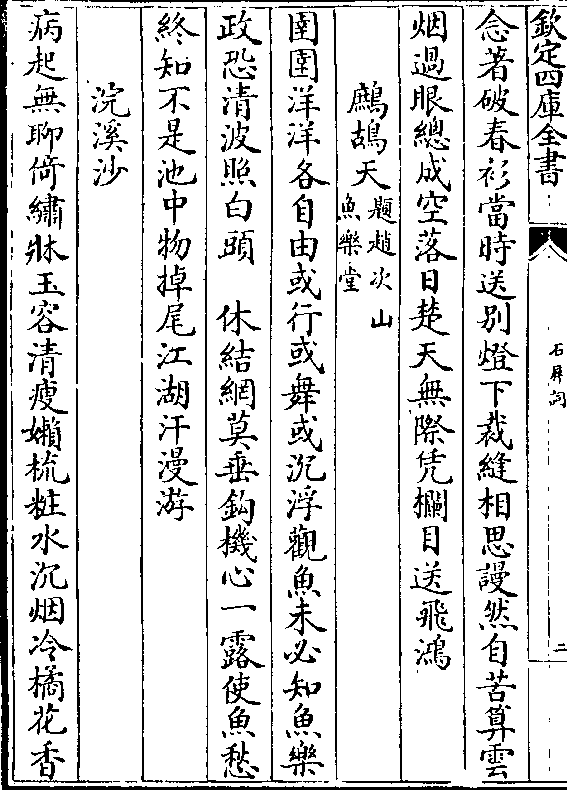 欽定四庫全書
石屏詞
二
念著破春衫當時送别燈下裁縫相思謾然自苦算雲
烟過眼總成空落日楚天無際凭欄目送飛鴻
鷓鴣天題趙次山魚樂堂
圉圉洋洋各自由或行或舞或沉浮觀魚未必知魚樂
政恐清波照白頭　休結網莫垂鈎機心一露使魚愁
終知不是池中物掉尾江湖汗漫游
浣溪沙
病起無聊倚繡牀玉容清瘦嬾梳粧水沉烟冷橘花香